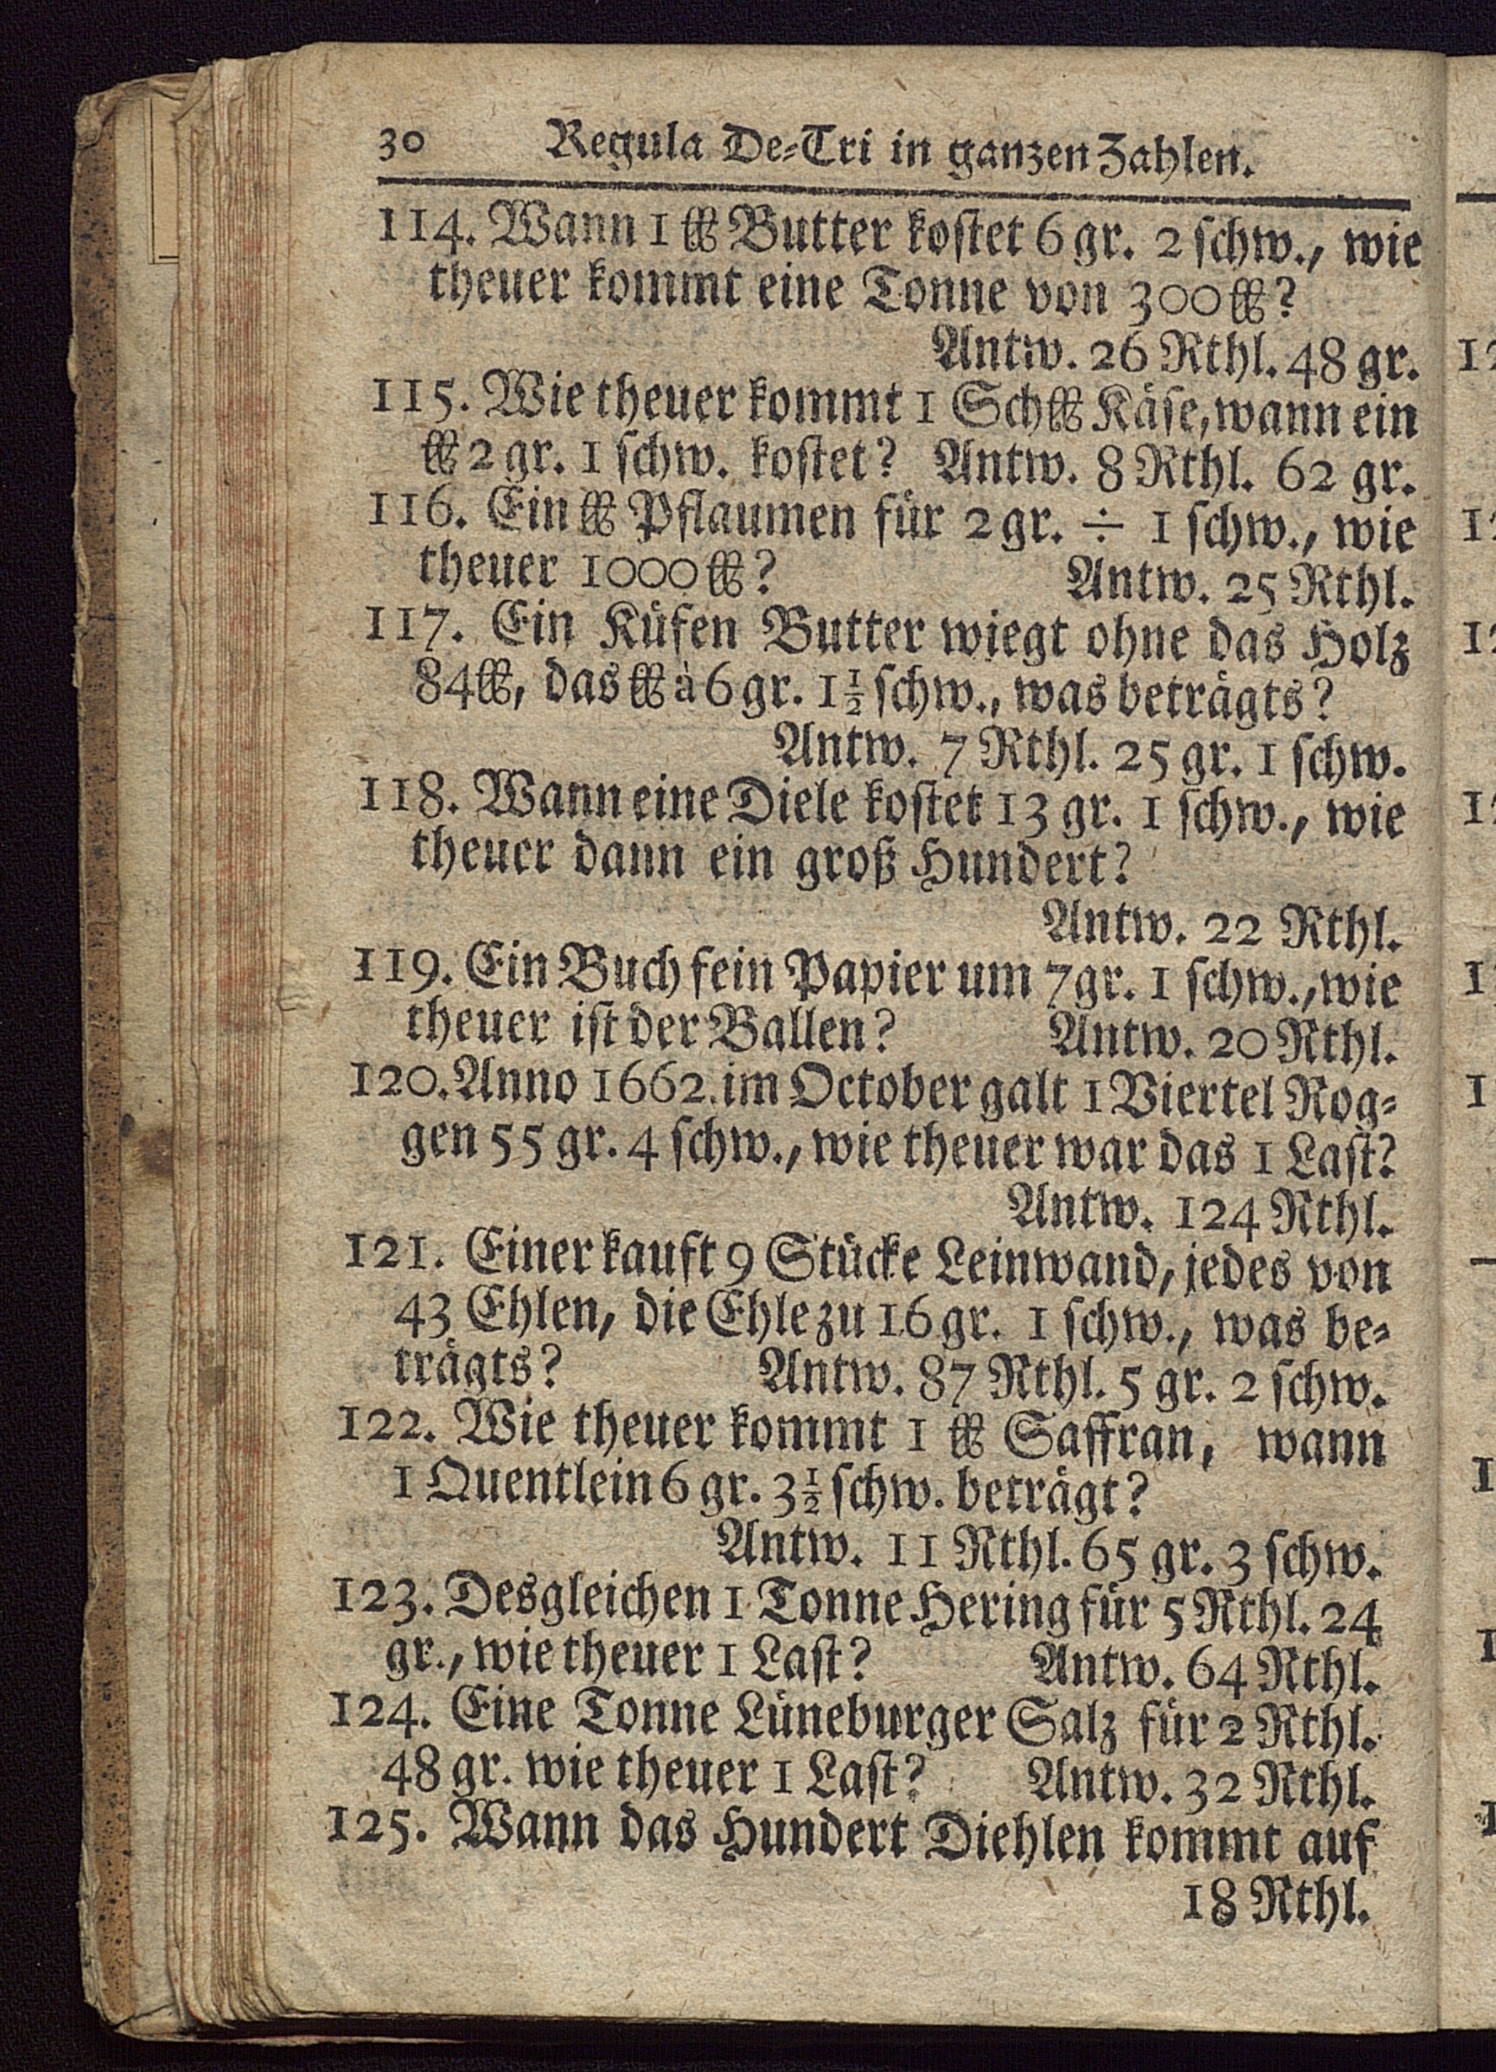 30 Regula De-Tri in ganzen Zahlen.
114. Wann 1 ℔ Butter kostet 6 gr. 2 schw., wie
theuer kommt eine Tonne von 300 ℔?
Antw. 26 Rthl. 48 gr.
115. Wie theuer kommt 1 Sch℔ Käse, wann ein
℔ 2 gr. 1 schw. kostet? Antw. 8 Rthl. 62 gr.
116. Ein ℔ Pflaumen für 2 gr. ÷ 1 schw., wie
theuer 1000 ℔? Antw. 25 Rthl.
117. Ein Küfen Butter wiegt ohne das Holz
84 ℔, das ℔ à 6 gr. 1 1/2 schw., was beträgts?
Antw. 7 Rthl. 25 gr. 1 schw.
118. Wann eine Diele kostet 13 gr. 1 schw., wie
theuer dann ein groß Hundert?
Antw. 22 Rthl.
119. Ein Buch fein Papier um 7 gr. 1 schw., wie
theuer ist der Ballen? Antw. 20 Rthl.
120. Anno 1662. im October galt 1 Viertel Rog-
gen 55 gr. 4 schw., wie theuer war das 1 Last?
Antw. 124 Rthl.
121. Einer kauft 9 Stücke Leinwand, jedes von
43 Ehlen, die Ehle zu 16 gr. 1 schw., was be-
trägts? Antw. 87 Rthl. 5 gr. 2 schw.
122. Wie theuer kommt 1 ℔ Saffran, wann
1 Quentlein 6 gr. 3 1/2 schw. beträgt?
Antw. 11 Rthl. 65 gr. 3 schw.
123. Desgleichen 1 Tonne Hering für 5 Rthl. 24
gr., wie theuer 1 Last? Antw. 64 Rthl.
124. Eine Tonne Lüneburger Salz für 2 Rthl.
48 gr. wie theuer 1 Last? Antw. 32 Rthl.
125. Wann das Hundert Diehlen kommt auf
18 Rthl.